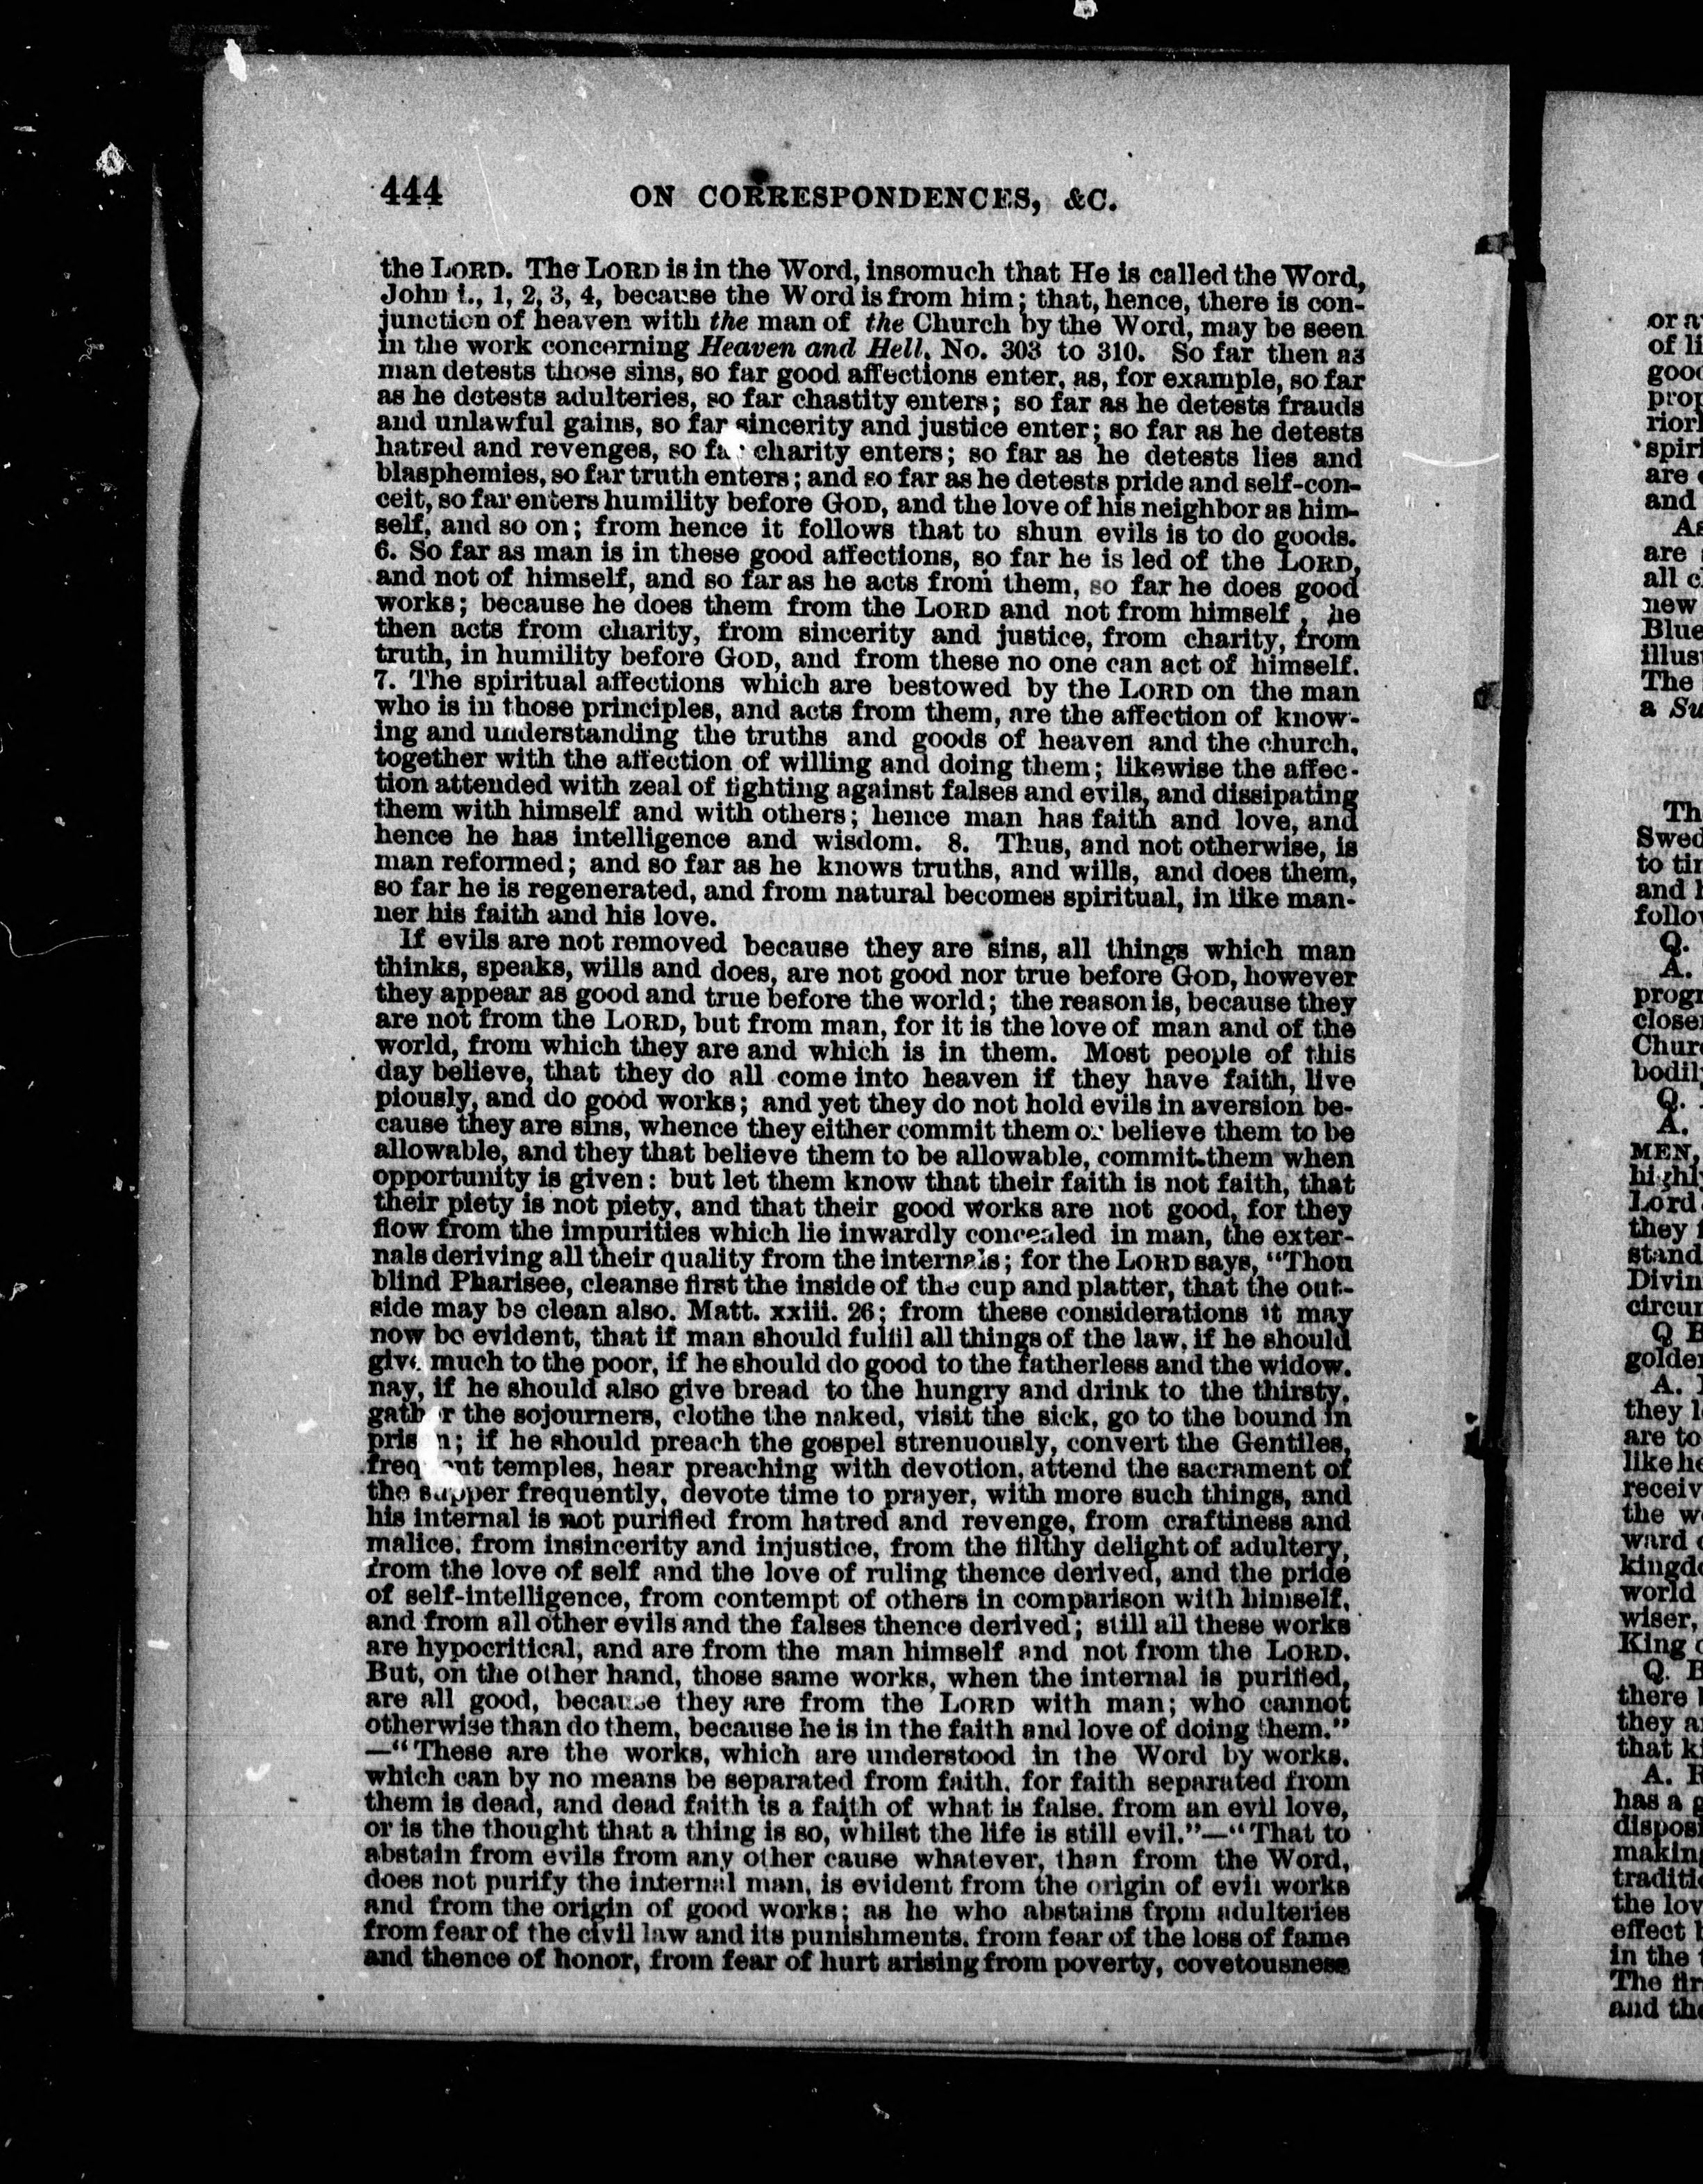 444 ON CORRESPONDENCES, &C.
the LORD. The LORD is in the Word, insomuch that He is called the Word,
John i., 1, 2, 3, 4, because the Word is from him; that, hence, there is con-
junction of heaven with the man of the Church by the Word, may be seen
in the work concerning Heaven and Hell, No. 303 to 310. So far then as
man detests those sins, so far good affections enter, as, for example, so far
as he detests adulteries, so far chastity enters; so far as he detests frauds
and unlawful gains, so far sincerity and justice enter; so far as he detests
hatred and revenges, so far charity enters; so far as he detests lies and
blasphemies, so far truth enters; and so far as he detests pride and self-con-
ceit, so far enters humility before GOD, and the love of his neighbor as him-
self, and so on; from hence it follows that to shun evils is to do goods.
6. So far as man is in these good affections, so far he is led of the LORD,
and not of himself, and so far as he acts from them, so far he does good
works; because he does them from the LORD and not from himself, he
then acts from charity, from sincerity and justice, from charity, from
truth, in humility before GOD, and from these no one can act of himself.
7. The spiritual affections which are bestowed by the LORD on the man
who is in those principles, and acts from them, are the affection of know-
ing and understanding the truths and goods of heaven and the church,
together with the affection of willing and doing them; likewise the affec-
tion attended with zeal of fighting against falses and evils, and dissipating
them with himself and with others; hence man has faith and love, and
hence he has intelligence and wisdom. 8. Thus, and not otherwise, is
man reformed; and so far as he knows truths, and wills, and does them,
so far he is regenerated, and from natural becomes spiritual, in like man-
ner his faith and his love.
If evils are not removed because they are sins, all things which man
thinks, speaks, wills and does, are not good nor true before GOD, however
they appear as good and true before the world; the reason is, because they
are not from the LORD, but from man, for it is the love of man and of the
world, from which they are and which is in them. Most people of this
day believe, that they do all come into heaven if they have faith, live
piously, and do good works; and yet they do not hold evils in aversion be-
cause they are sins, whence they either commit them or believe them to be
allowable, and they that believe them to be allowable, commit them when
opportunity is given: but let them know that their faith is not faith, that
their piety is not piety, and that their good works are not good, for they
flow from the impurities which lie inwardly concealed in man, the exter-
nals deriving all their quality from the internals; for the LORD says, "Thou
blind Pharisee, cleanse first the inside of the cup and platter, that the out-
side may be clean also. Matt. xxiii. 26; from these considerations it may
now be evident, that if man should fulfil all things of the law, if he should
give much to the poor, if he should do good to the fatherless and the widow.
nay, if he should also give bread to the hungry and drink to the thirsty,
gather the sojourners, clothe the naked, visit the sick, go to the bound in
prison; if he should preach the gospel strenuously, convert the Gentiles,
frequent temples, hear preaching with devotion, attend the sacrament of
the supper frequently, devote time to prayer, with more such things, and
his internal is not purified from hatred and revenge, from craftiness and
malice, from insincerity and injustice, from the filthy delight of adultery,
from the love of self and the love of ruling thence derived, and the pride
of self-intelligence, from contempt of others in comparison with himself,
and from all other evils and the falses thence derived; still all these works
are hypocritical, and are from the man himself and not from the LORD.
But, on the other hand, those same works, when the internal is purified,
are all good, because they are from the LORD with man; who cannot
otherwise than do them, because he is in the faith and love of doing them."
—"These are the works, which are understood in the Word by works,
which can by no means be separated from faith, for faith separated from
them is dead, and dead faith is a faith of what is false, from an evil love,
or is the thought that a thing is so, whilst the life is still evil."—"That to
abstain from evils from any other cause whatever, than from the Word,
does not purify the internal man, is evident from the origin of evil works
and from the origin of good works; as he who abstains from adulteries
from fear of the civil law and its punishments, from fear of the loss of fame
and thence of honor, from fear of hurt arising from poverty, covetousness